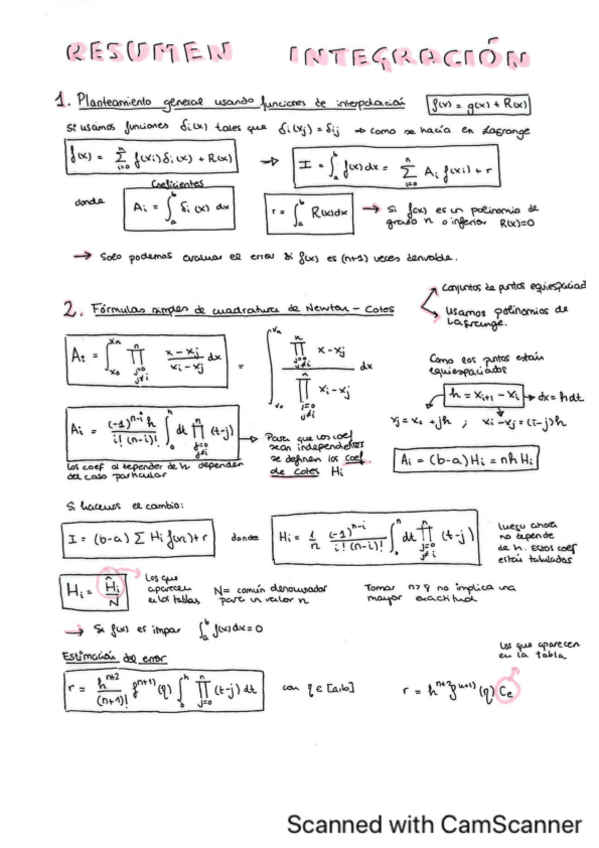 RESUMEN INTEGRACIÓN
1. Planteamiento general usando funciones de interpolación f(x) = g(x) + R(x)
Si usamos funciones δi(x) tales que δi(xj) = δij → como se hacía en Lagrange
f(x) = Σ_{i=0}^{n} f(xi) δi(x) + R(x) → I = ∫_a^b f(x)dx = Σ_{i=0}^{n} Ai f(xi) + r
Coeficientes
donde Ai = ∫_a^b δi(x) dx r = ∫_a^b R(x)dx → Si f(x) es un polinomio de
grado n o inferior R(x)=0
→ Solo podemos evaluar el error si f(x) es (n+1) veces derivable.
Conjuntos de puntos equiespaciad
2. Fórmulas simples de cuadratura de Newton - Cotes
Usamos polinomios de
Lagrange.
Ai = ∫_{x0}^{xn} ∏_{j=0, j≠i}^{n} (x - xj)/(xi - xj) dx = ∫_{x0}^{xn} (∏_{j=0, j≠i}^{n} x - xj)/(∏_{j=0, j≠i}^{n} xi - xj) dx
Como los puntos están
equiespaciados
h = xi+1 - xi → dx = hdt
xj = x0 + jh ; xi - xj = (i-j)h
Ai = (-1)^{n-i} h / i!(n-i)! ∫_0^n dt ∏_{j=0, j≠i}^{n} (t-j)
→ Para que los coef
sean independientes
se definen los coef
de cotes Hi
Ai = (b-a) Hi = nh Hi
los coef al depender de h dependen
del caso particular
Si hacemos el cambio:
I = (b-a) Σ Hi f(xi) + r donde Hi = 1/n (-1)^{n-i} / i!(n-i)! ∫_0^n dt ∏_{j=0, j≠i}^{n} (t-j)
luego ahora
no depende
de h. Estos coef
están tabulados
Hi = Ĥi/N
Los que
aparecen
en las tablas
N = común denominador
para un valor n
Tomar n>9 no implica una
mayor exactitud
→ Si f(x) es impar ∫_a^b f(x)dx = 0
Los que aparecen
en la tabla
Estimación del error
r = h^{n+2}/(n+1)! f^{n+1)}(η) ∫_0^n ∏_{j=0}^{n} (t-j) dt con η ∈ [a,b] r = h^{n+2} f^{n+1)}(η) Ce
Scanned with CamScanner